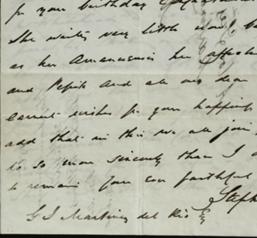 for your birthday
She writes very little now
as her Amanuensis her affection
and Pepita and all our dear
earnest wishes for your happin
add that in this we all join
to so more sincerely than I
to remain your ever faithful
G J Martinez del Rio Esq